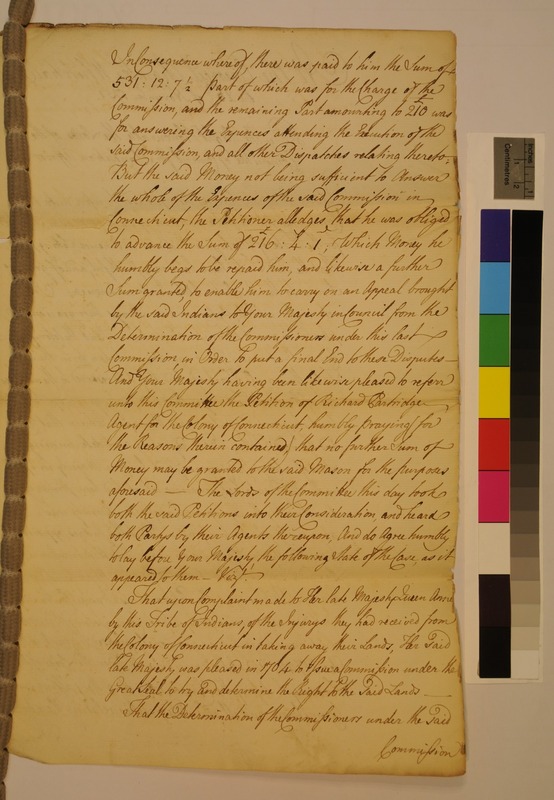 In Consequence whereof, there was paid to him the Sum of
531:12:7½ part of which was for the Charge of the
Commission, and the remaining Part amounting to £210 was
for answering the Expences attending the Execution of the
said Commission, and all other Dispatches relating thereto.
But the said Money not being sufficient to Answer
the whole of the Expences of the said Commission in
Connecticut, the Petitioner alledges that he was obliged
to advance the Sum of 216:4:1, Which Money he
humbly begs to be repaid him, and likewise a further
Sum granted to enable him to carry on an Appeal brought
by the said Indians to Your Majesty in Council from the
Determination of the Commissioners under this last
Commission in Order to put a final End to these Disputes —
And Your Majesty having been likewise pleased to referr
unto this Committee the Petition of Richard Partridge
Agent for the Colony of Connecticut humbly praying (for
the Reasons therein contained) that no further Sum of
Money may be granted to the said Mason for the purposes
aforesaid — The Lords of the Committee this day took
both the said Petitions into their Consideration, and heard
both Partys by their Agents thereupon, And do Agree humbly
to lay before Your Majesty the following State of the Case, as it
appeared to them — Vizt.
That upon Complaint made to Her late Majesty Queen Anne
by this Tribe of Indians, of the Injurys they had received from
the Colony of Connecticut in taking away their Lands, Her said
late Majesty was pleased in 1704 to Issue a Commission under the
Great Seal to try and determine the Right to the said Lands —
That the Determination of the Commissioners under the said
Commission
Inches
Centimetres